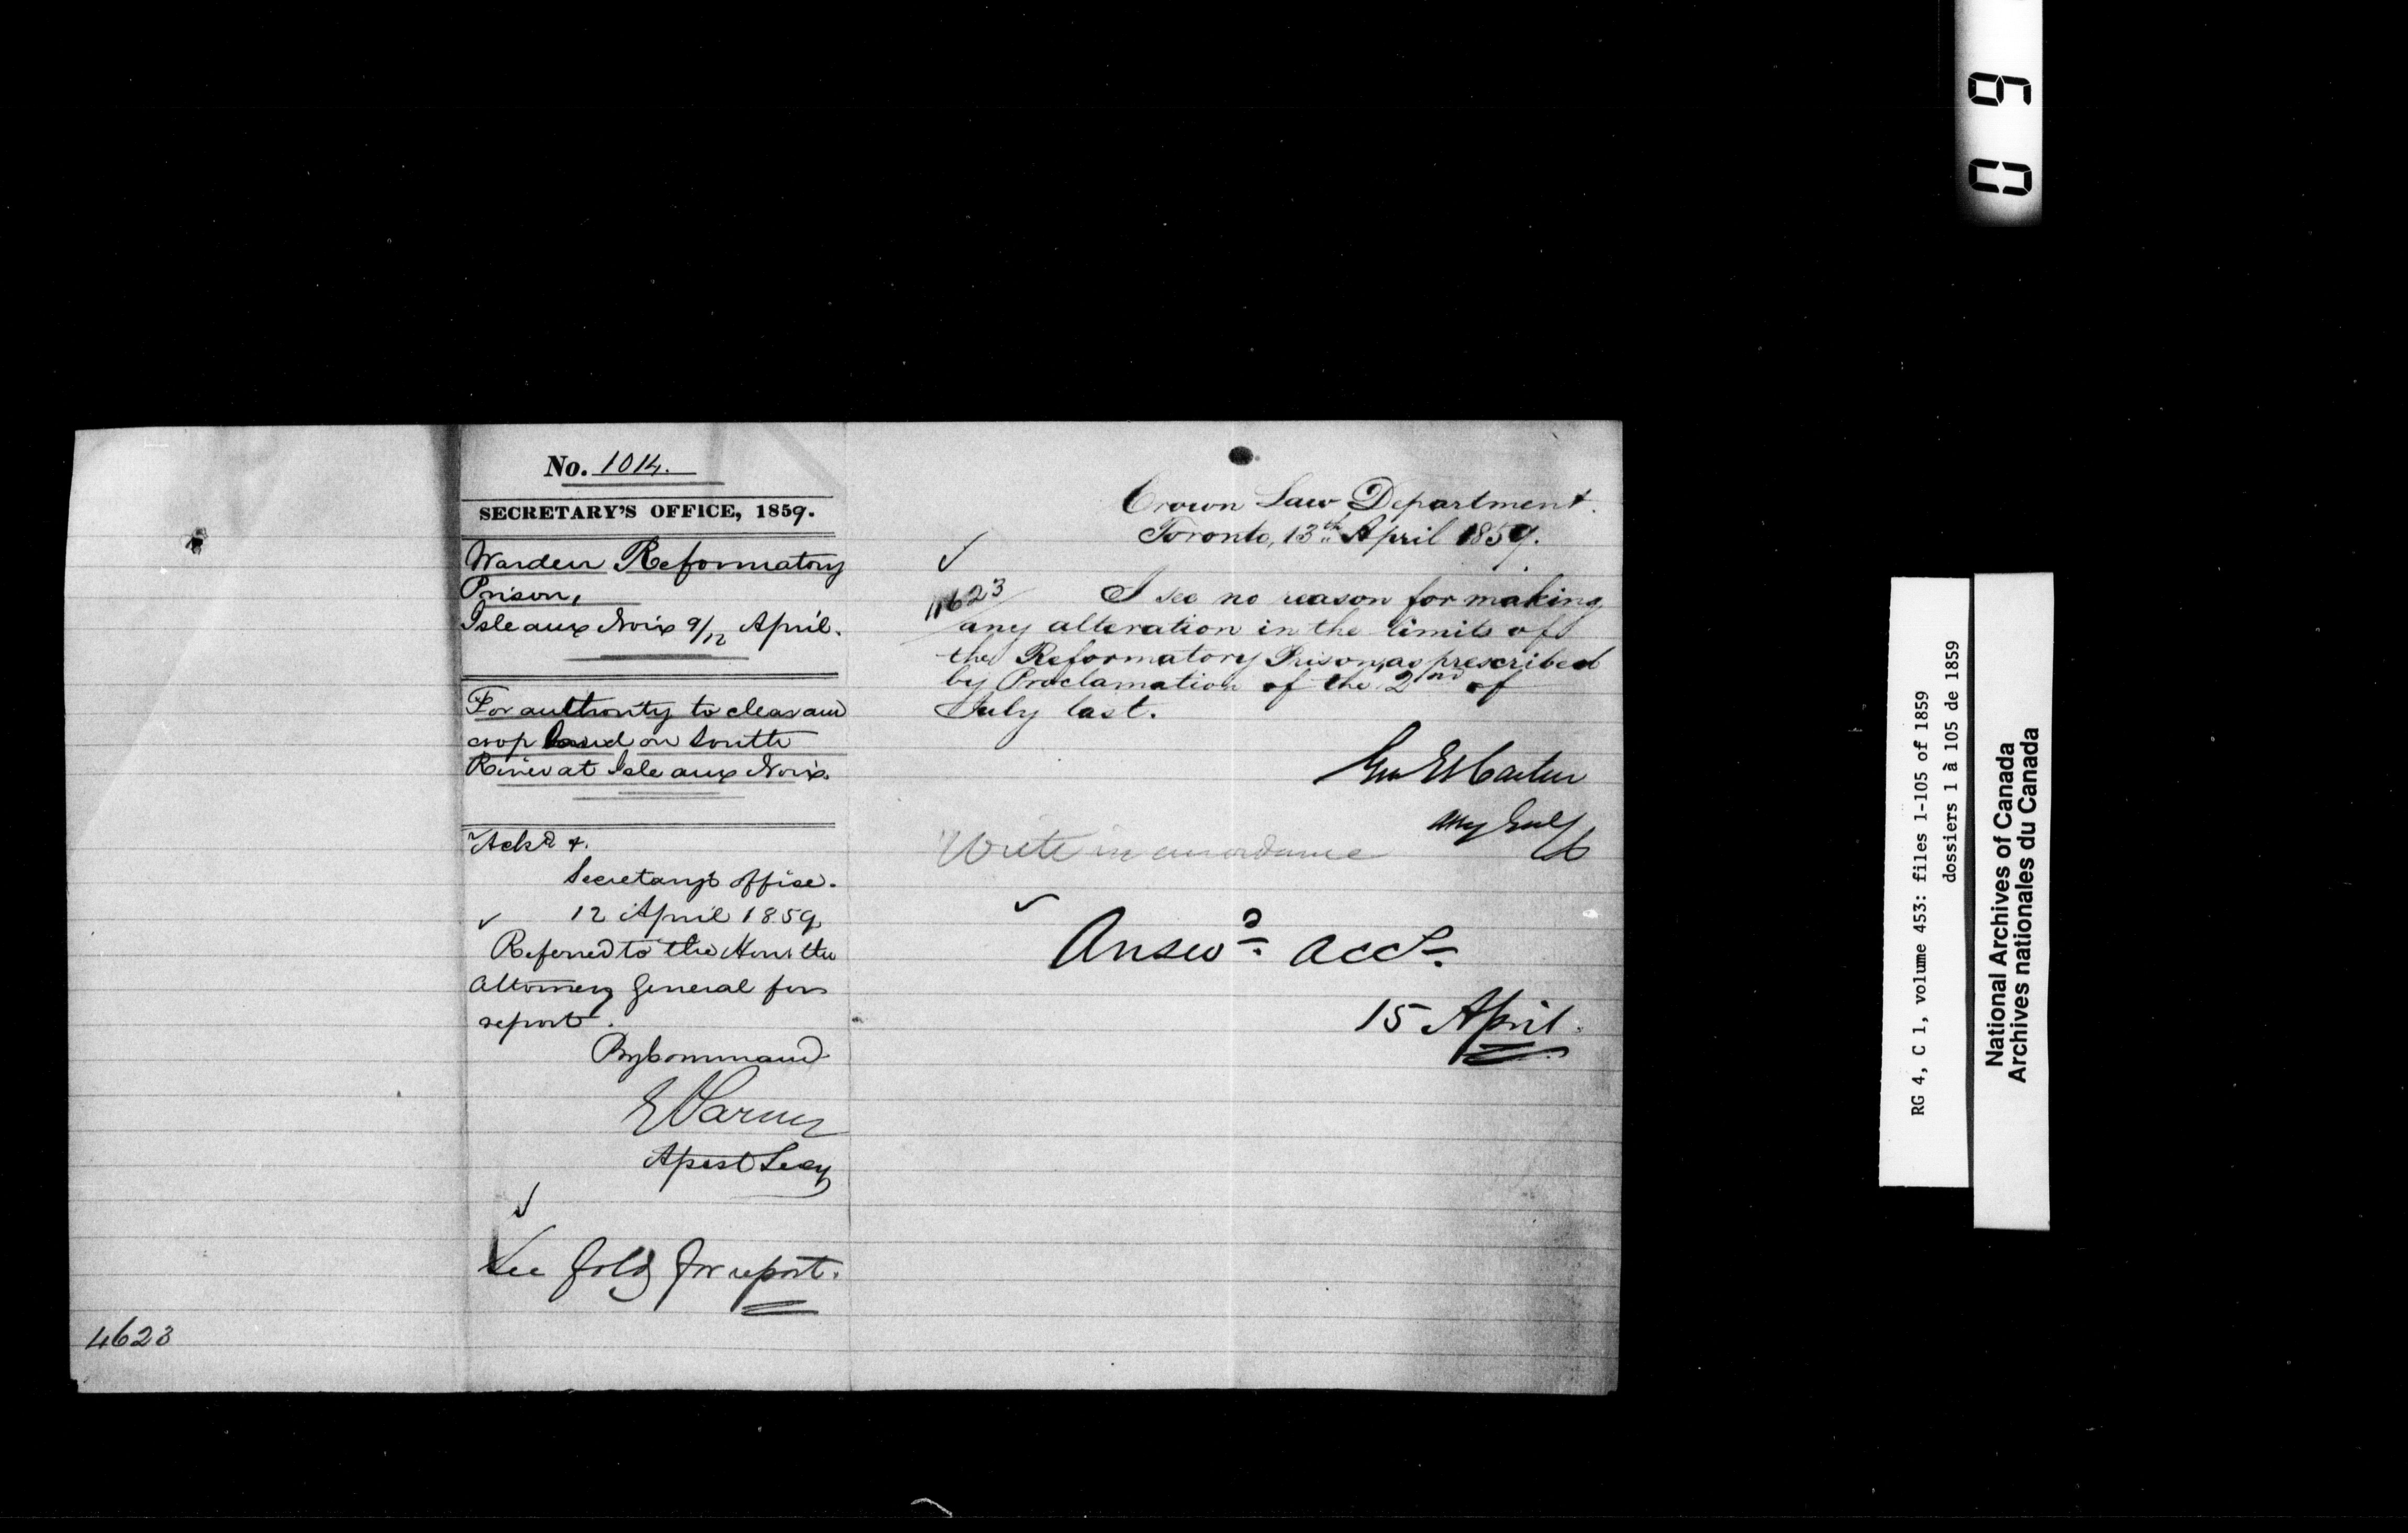 No. 1014.
SECRETARY'S OFFICE, 1859.
Warden Reformatory
Prison,
Isle aux Noix 9/12 April.
For authority to clear and
crop land on South
River at Isle aux Noix
Ackd &.
Secretary's Office.
12 April 1859
Referred to the Hon. the
Attorney General for
report.
By Command
Asst Secy
See fold for report.
4623
Crown Law Department.
Toronto, 13th April 1859.
4623
I see no reason for making
any alteration in the limits of
the Reformatory Prison, as prescribed
by Proclamation of the 2nd of
July last.
Geo E Cartier
Atty Genl
Write in accordance
Answd. accy.
15 April.
09
RG 4, C 1, volume 453: files 1-105 of 1859
dossiers 1 à 105 de 1859
National Archives of Canada
Archives nationales du Canada